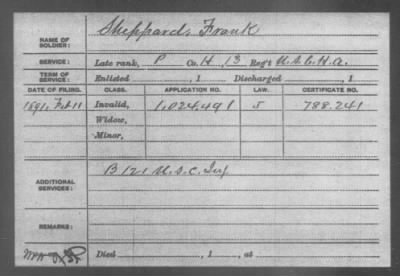 NAME OF SOLDIER: Sheppard, Frank
SERVICE: Late rank, P Co. H, 13 Reg't U.S.C.H.A.
TERM OF SERVICE: Enlisted , 1 Discharged , 1
DATE OF FILING. CLASS. APPLICATION NO. LAW. CERTIFICATE NO.
1891, Feb 11 Invalid, 1,024,491 J 788.241
Widow,
Minor,
ADDITIONAL SERVICES: B 121 U.S.C. Inf
REMARKS:
Died , 1 , at